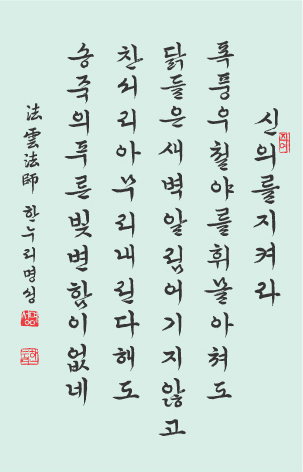 신의를지켜라
폭풍우칠야를휘몰아쳐도
닭들은새벽알림어기지않고
찬서리아무리내린다해도
송죽의푸른빛변함이없네
法雲法師 한누리명상